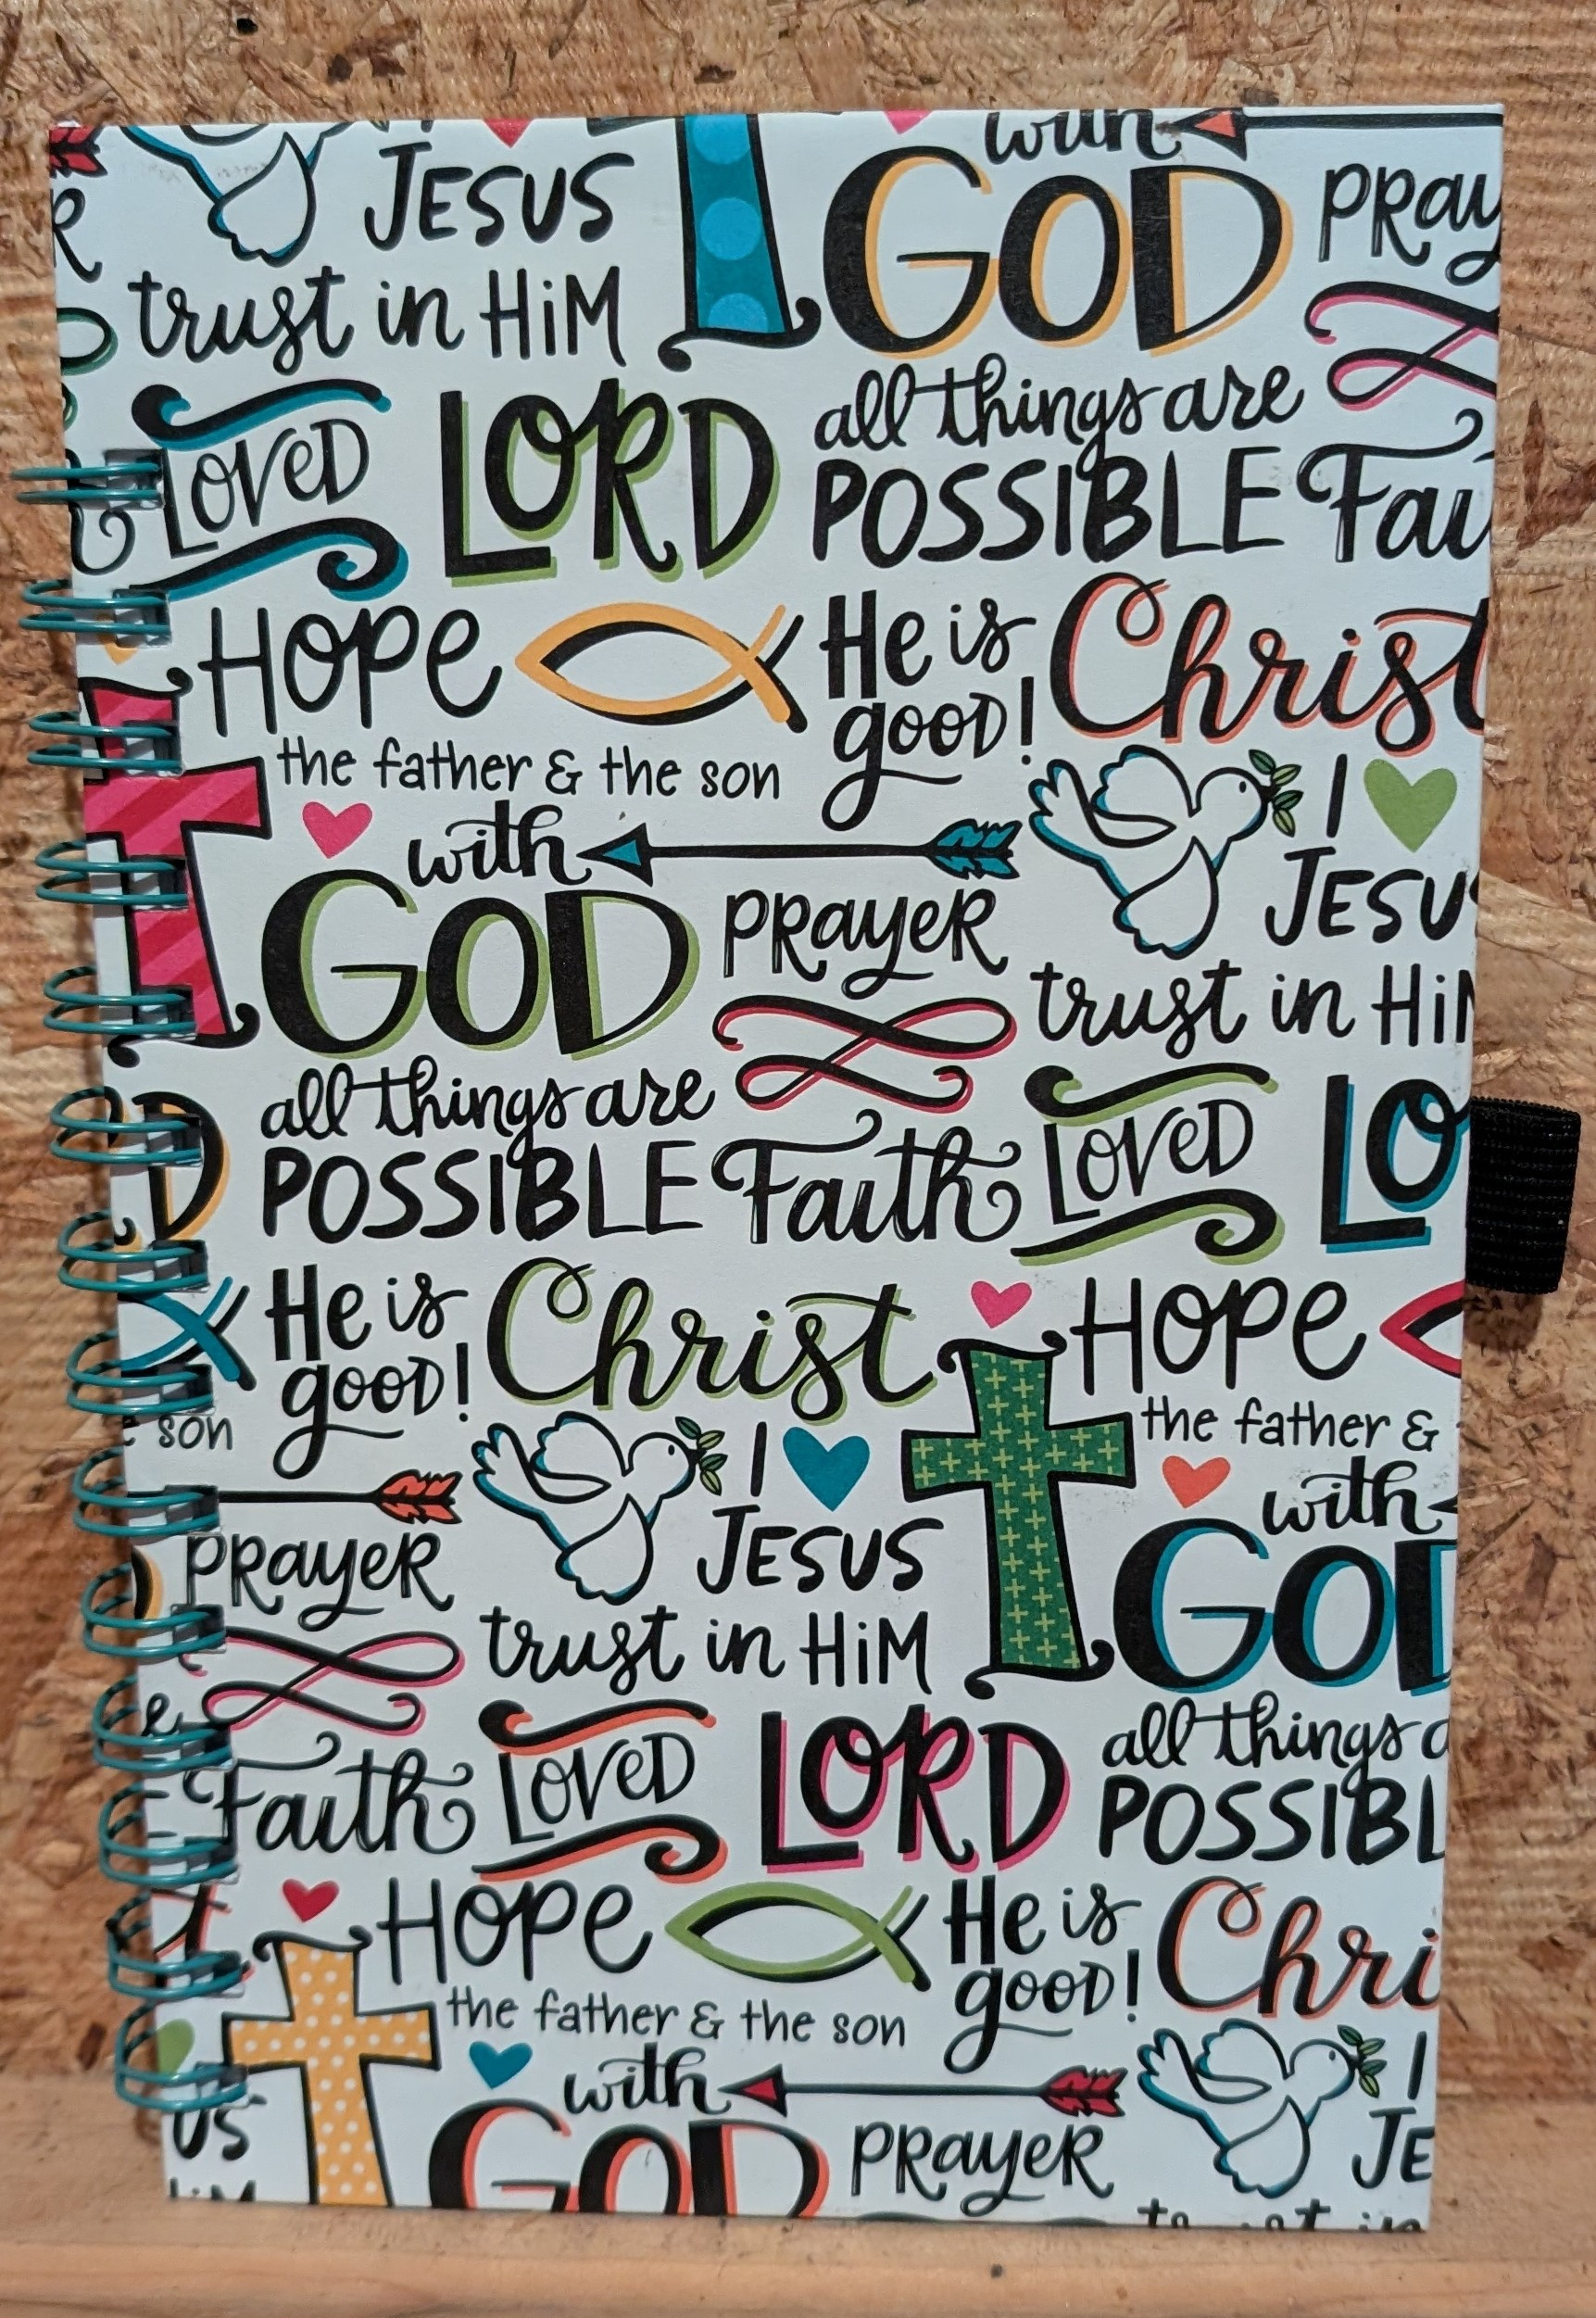 JESUS
with
GOD
PRay
R
trust in HiM
all things are
POSSIBLE
LOVED
LORD
Fai
HOPE
He is
good!
Christ
the father & the son
I
JESU
with
GOD
PRayeR
trust in Hi
all things are
POSSIBLE
Faith
LOVED
LO
D
He is
good!
Christ
HOPE
e son
the father &
I
JESUS
with
GOD
PRayeR
trust in HiM
e
Faith
LOVED
LORD
all things a
POSSIBL
HOPE
He is
good!
Chri
t
the father & the son
with
GOD
PRayeR
I
JE
US
HiM
trust in